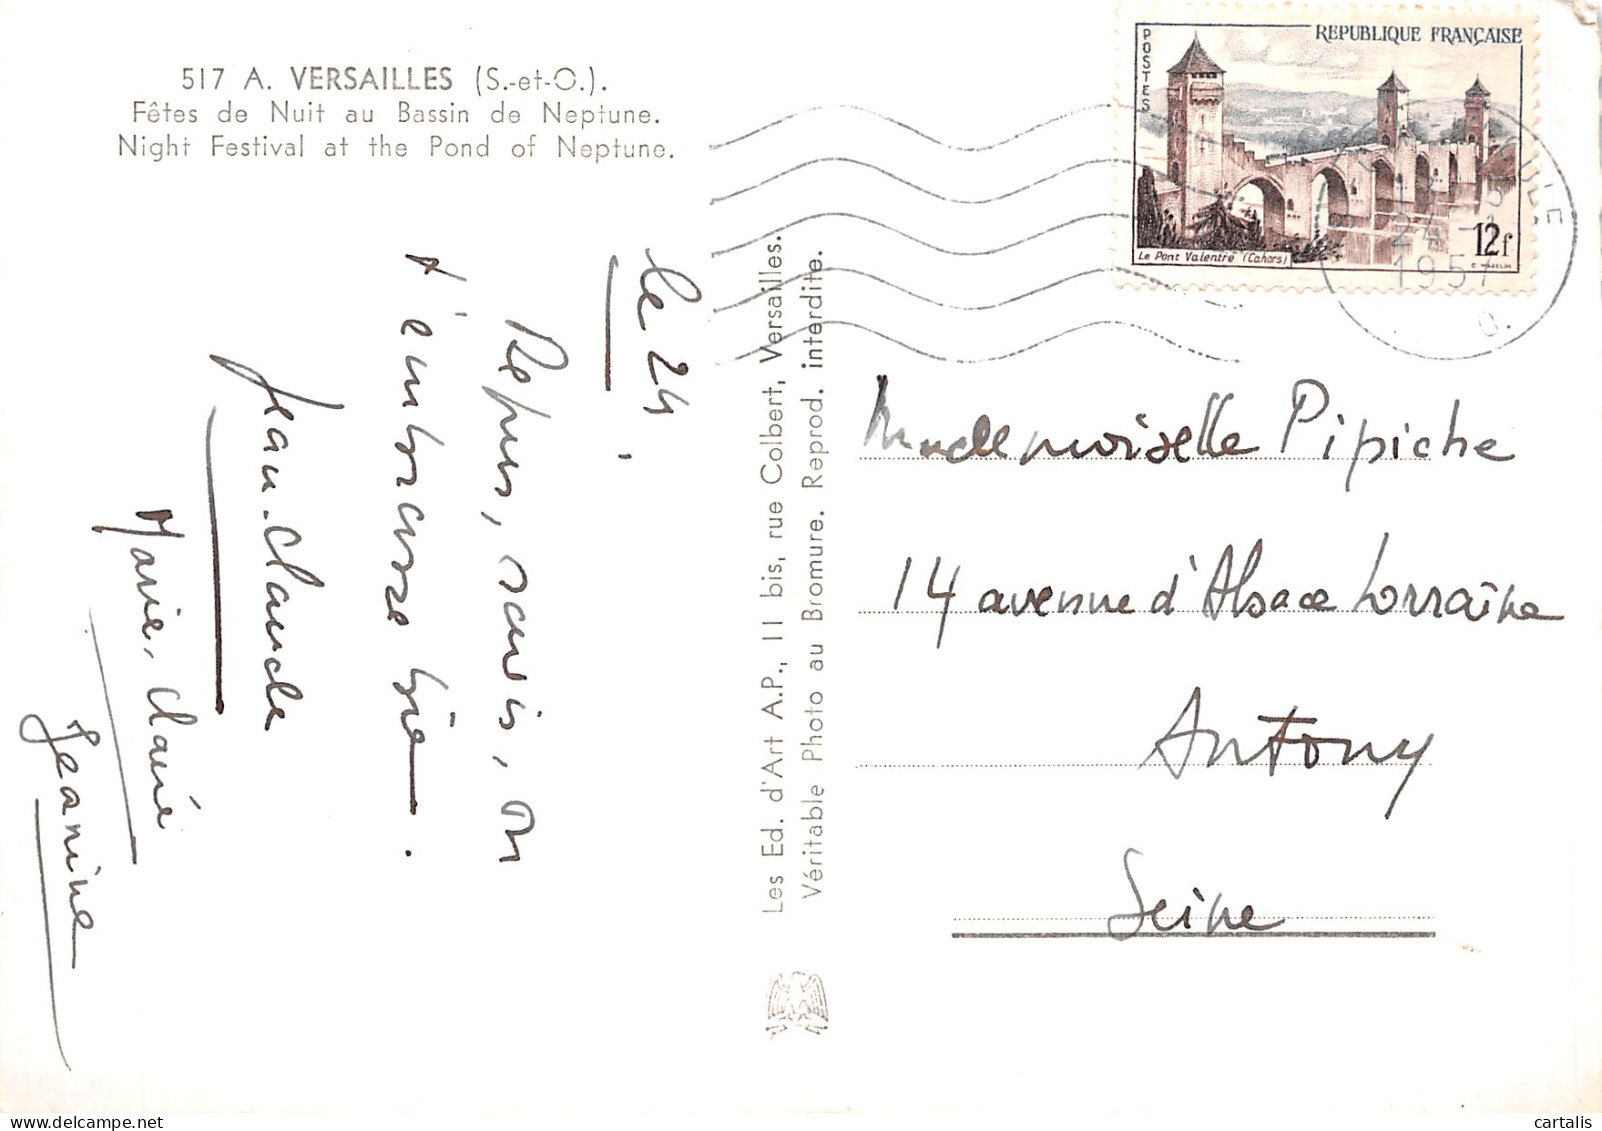 517 A. VERSAILLES (S.-et-O.).
Fêtes de Nuit au Bassin de Neptune.
Night Festival at the Pond of Neptune.
REPUBLIQUE FRANÇAISE
POSTES
Le Pont Valentré (Cahors)
12f
24
1957
O.
le 24
souris, on
t'embrasse bien.
Jean-Claude
Marie-Claire
Jeanine
Les Ed. d'Art A.P., 11 bis, rue Colbert, Versailles.
Véritable Photo au Bromure. Reprod. interdite.
Mademoiselle Pipiche
14 avenue d'Alsace Lorraine
Antony
Seine
cartalis